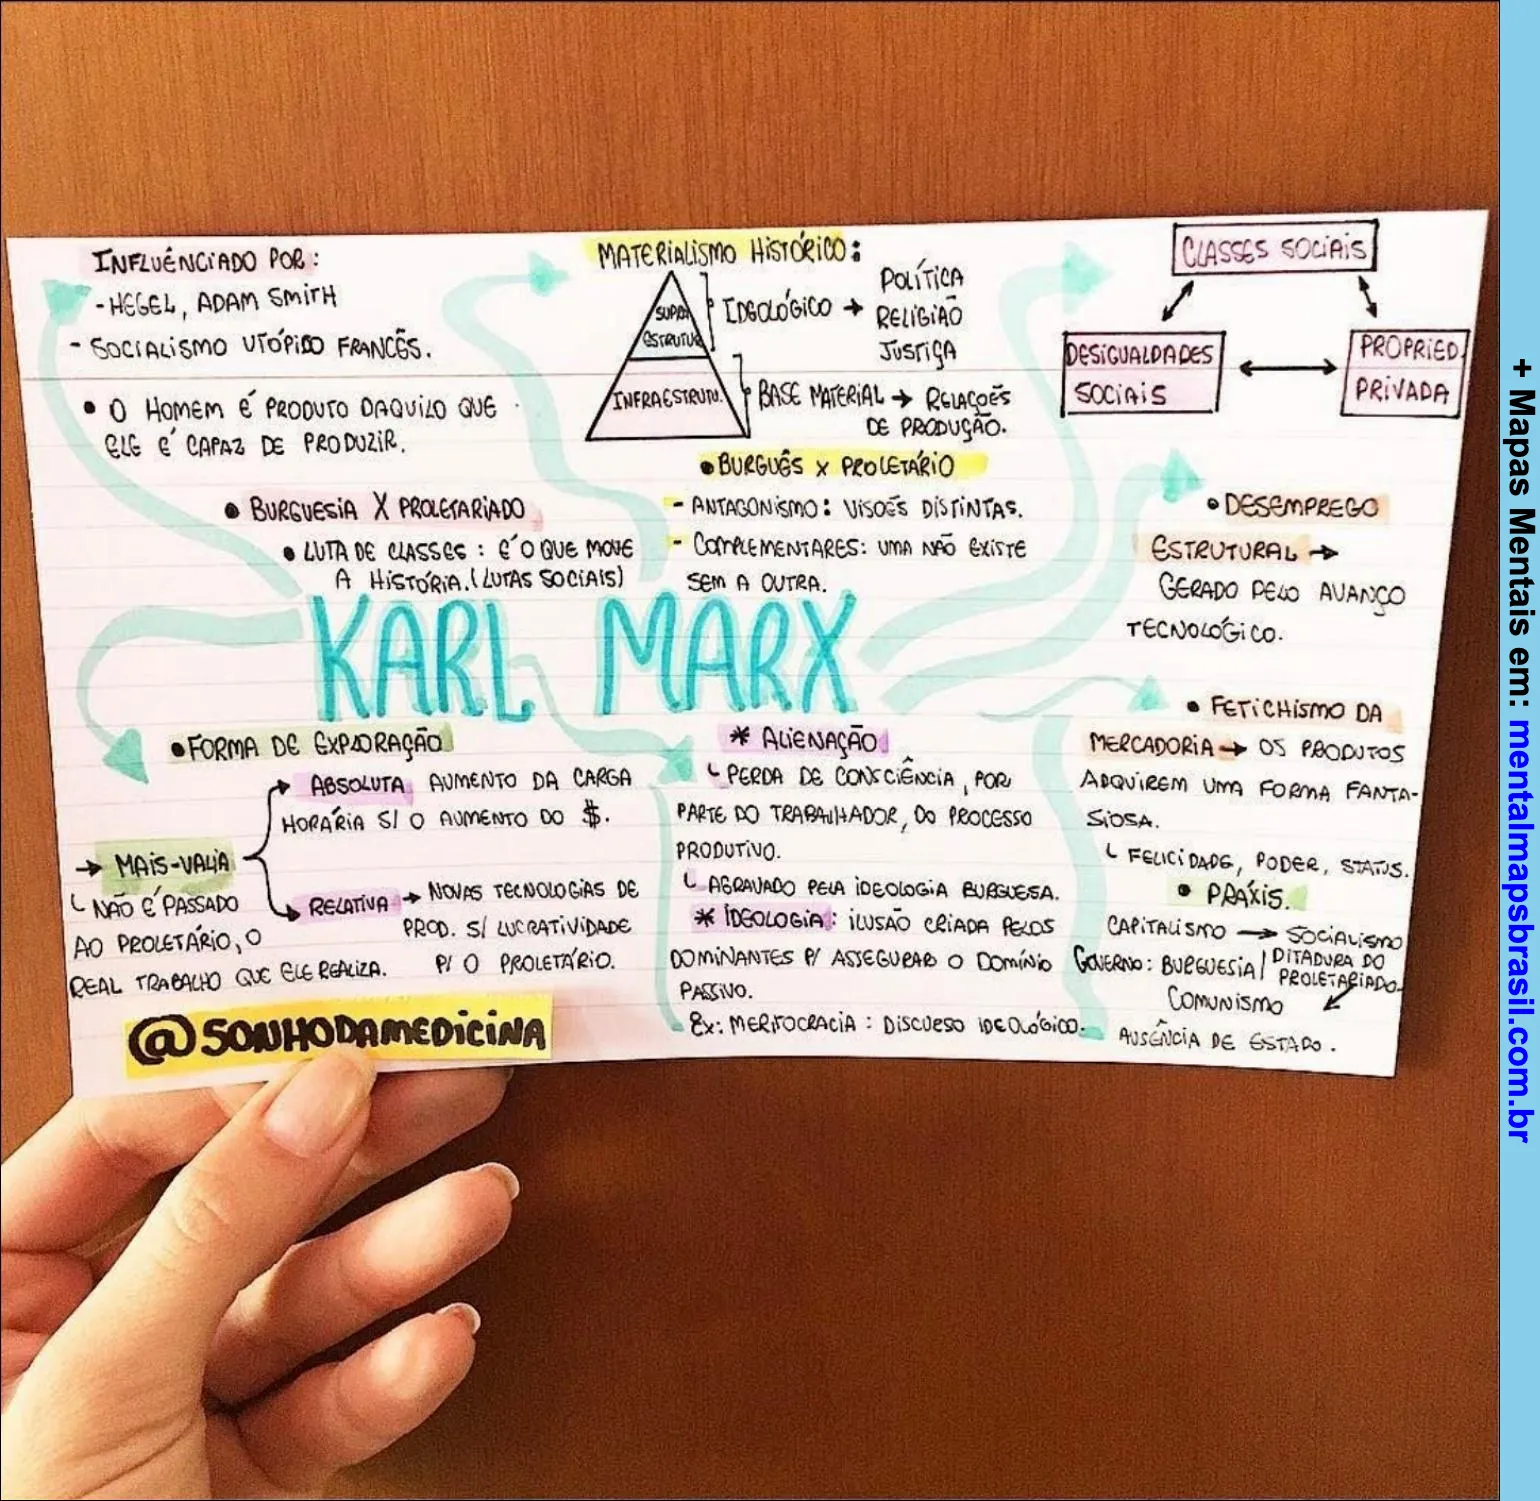 INFLUÊNCIADO POR:
- HEGEL, ADAM SMITH
- SOCIALISMO UTÓPICO FRANCÊS.
• O HOMEM É PRODUTO DAQUILO QUE
ELE É CAPAZ DE PRODUZIR.
• BURGUESIA X PROLETARIADO
• LUTA DE CLASSES: É O QUE MOVE
A HISTÓRIA. (LUTAS SOCIAIS)
MATERIALISMO HISTÓRICO:
SUPRA
ESTRUTUR
INFRAESTRUTU.
IDEOLÓGICO →
POLÍTICA
RELIGIÃO
JUSTIÇA
BASE MATERIAL → RELAÇÕES
DE PRODUÇÃO.
• BURGUÊS X PROLETÁRIO
- ANTAGONISMO: VISOÊS DISTINTAS.
- COMPLEMENTARES: UMA NÃO EXISTE
SEM A OUTRA.
CLASSES SOCIAIS
DESIGUALDADES
SOCIAIS
PROPRIED.
PRIVADA
• DESEMPREGO
ESTRUTURAL →
GERADO PELO AVANÇO
TECNOLÓGICO.
KARL MARX
• FORMA DE EXPLORAÇÃO
→ MAIS-VALIA
NÃO É PASSADO
AO PROLETÁRIO, O
REAL TRABALHO QUE ELE REALIZA.
ABSOLUTA AUMENTO DA CARGA
HORÁRIA S/ O AUMENTO DO $.
RELATIVA → NOVAS TECNOLOGIAS DE
PROD. S/ LUCRATIVIDADE
P/ O PROLETÁRIO.
* ALIENAÇÃO
PERDA DE CONSCIÊNCIA, POR
PARTE DO TRABALHADOR, DO PROCESSO
PRODUTIVO.
AGRAVADO PELA IDEOLOGIA BURGUESA.
* IDEOLOGIA: ILUSÃO CRIADA PELOS
DOMINANTES P/ ASSEGURAR O DOMÍNIO
PASSIVO.
Ex: MERITOCRACIA: DISCURSO IDEOLÓGICO.
• FETICHISMO DA
MERCADORIA → OS PRODUTOS
ADQUIREM UMA FORMA FANTA-
SIOSA.
FELICIDADE, PODER, STATUS.
• PRÁXIS.
CAPITALISMO → SOCIALISMO
GOVERNO: BURGUESIA / DITADURA DO
PROLETARIADO.
COMUNISMO
AUSÊNCIA DE ESTADO.
@SONHODAMEDICINA
+ Mapas Mentais em: mentalmapsbrasil.com.br